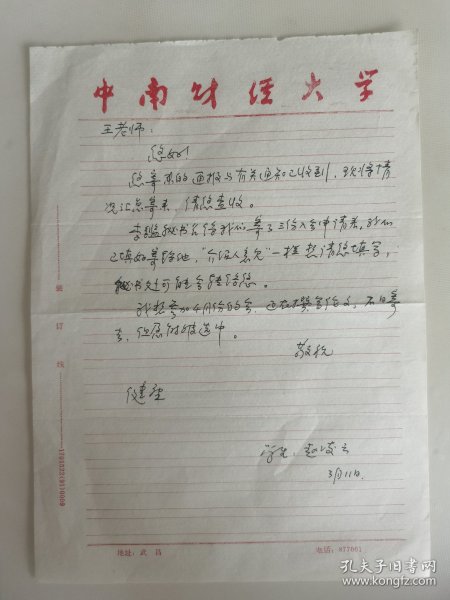 中南财经大学
王老师：
您好！
您寄来的通报与有关通知已收到，现将情
况汇总寄来，请您查收。
李 秘书长给我们寄了三份入会申请表，我们
已填好寄给他，“介绍人意见”一栏想请您填写，
秘书处可能会转给您。
我想参加4月份的会，还在 论文，不日寄
去，但愿 中。
敬祝
健康
学生：赵凌云
3月11日
装
订
线
地址：武昌
电话：877061
孔夫子旧书网
www.kongfz.com